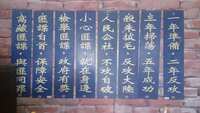 一年準備　二年反攻
三年掃蕩　五年成功
殺朱拔毛　反攻大陸
人民公社　不攻自破
小心匪諜　就在身邊
檢舉匪諜　政府有獎
匪諜自首　保障安全
窩藏匪諜　與匪同罪